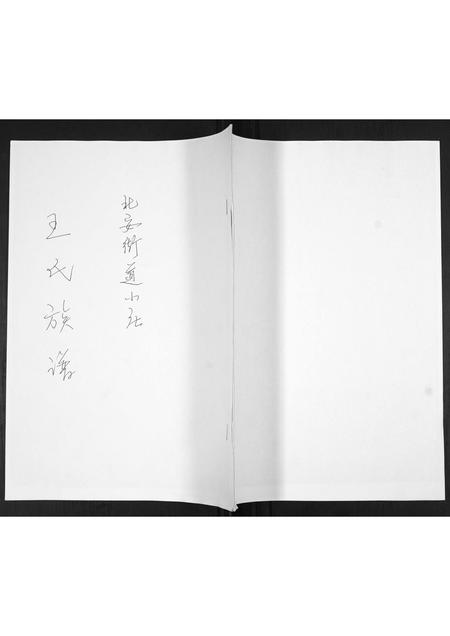 北安街道小庄
王氏族谱